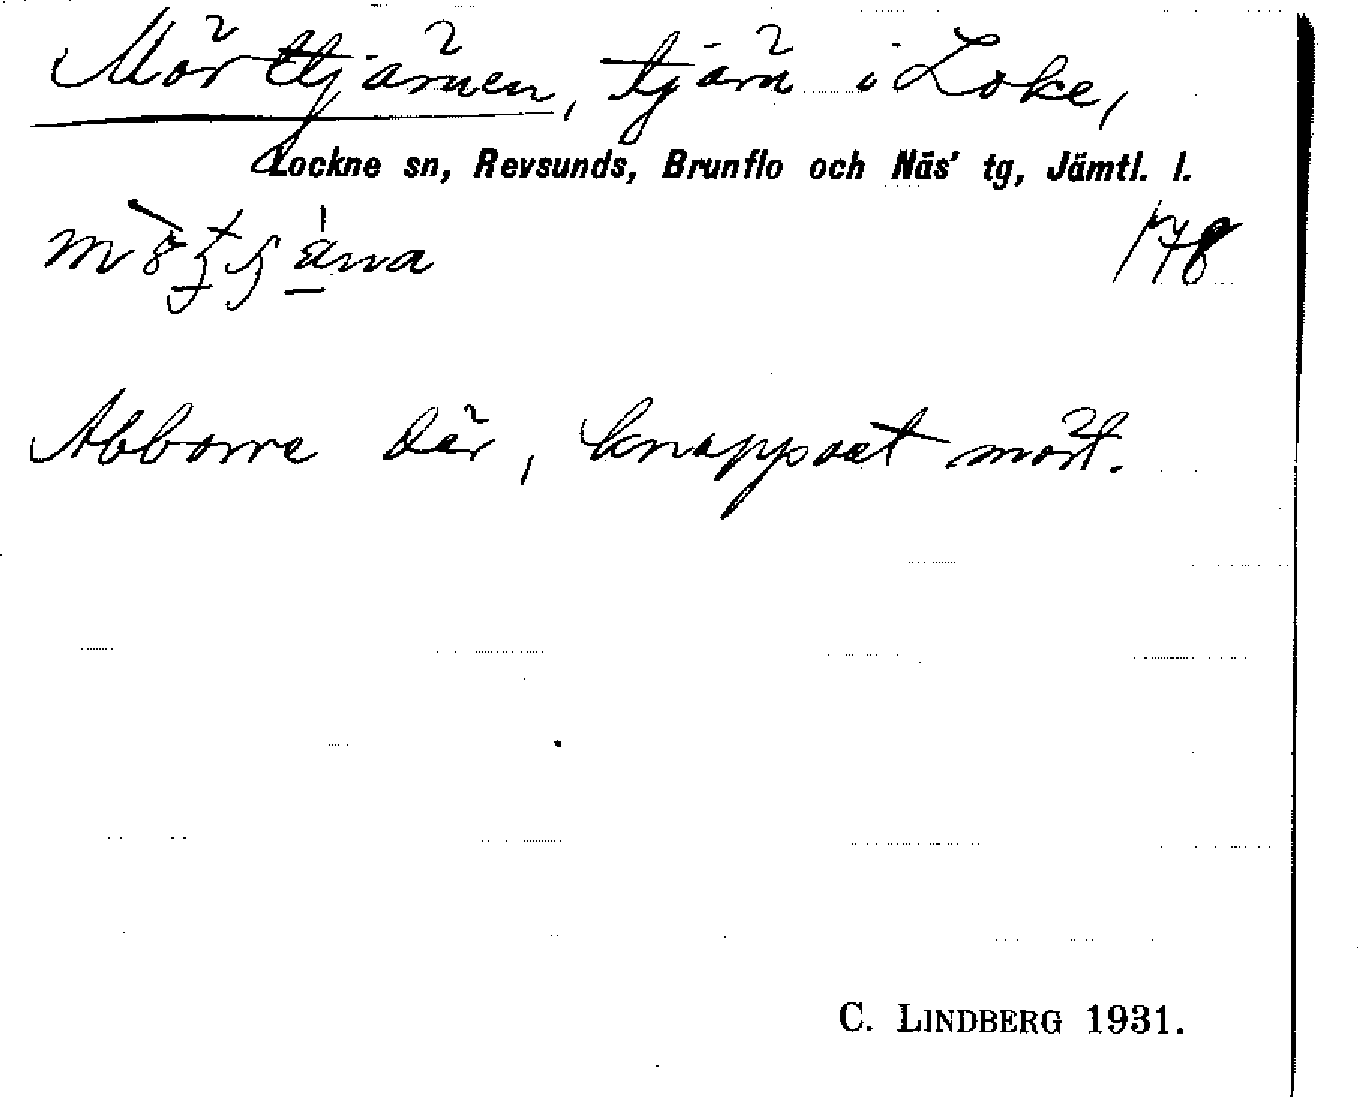 Mörttjärnen, tjärn i Loke,
Lockne sn, Revsunds, Brunflo och Näs' tg, Jämtl. l.
178
Abborre där, knappast mört.
C. LINDBERG 1931.